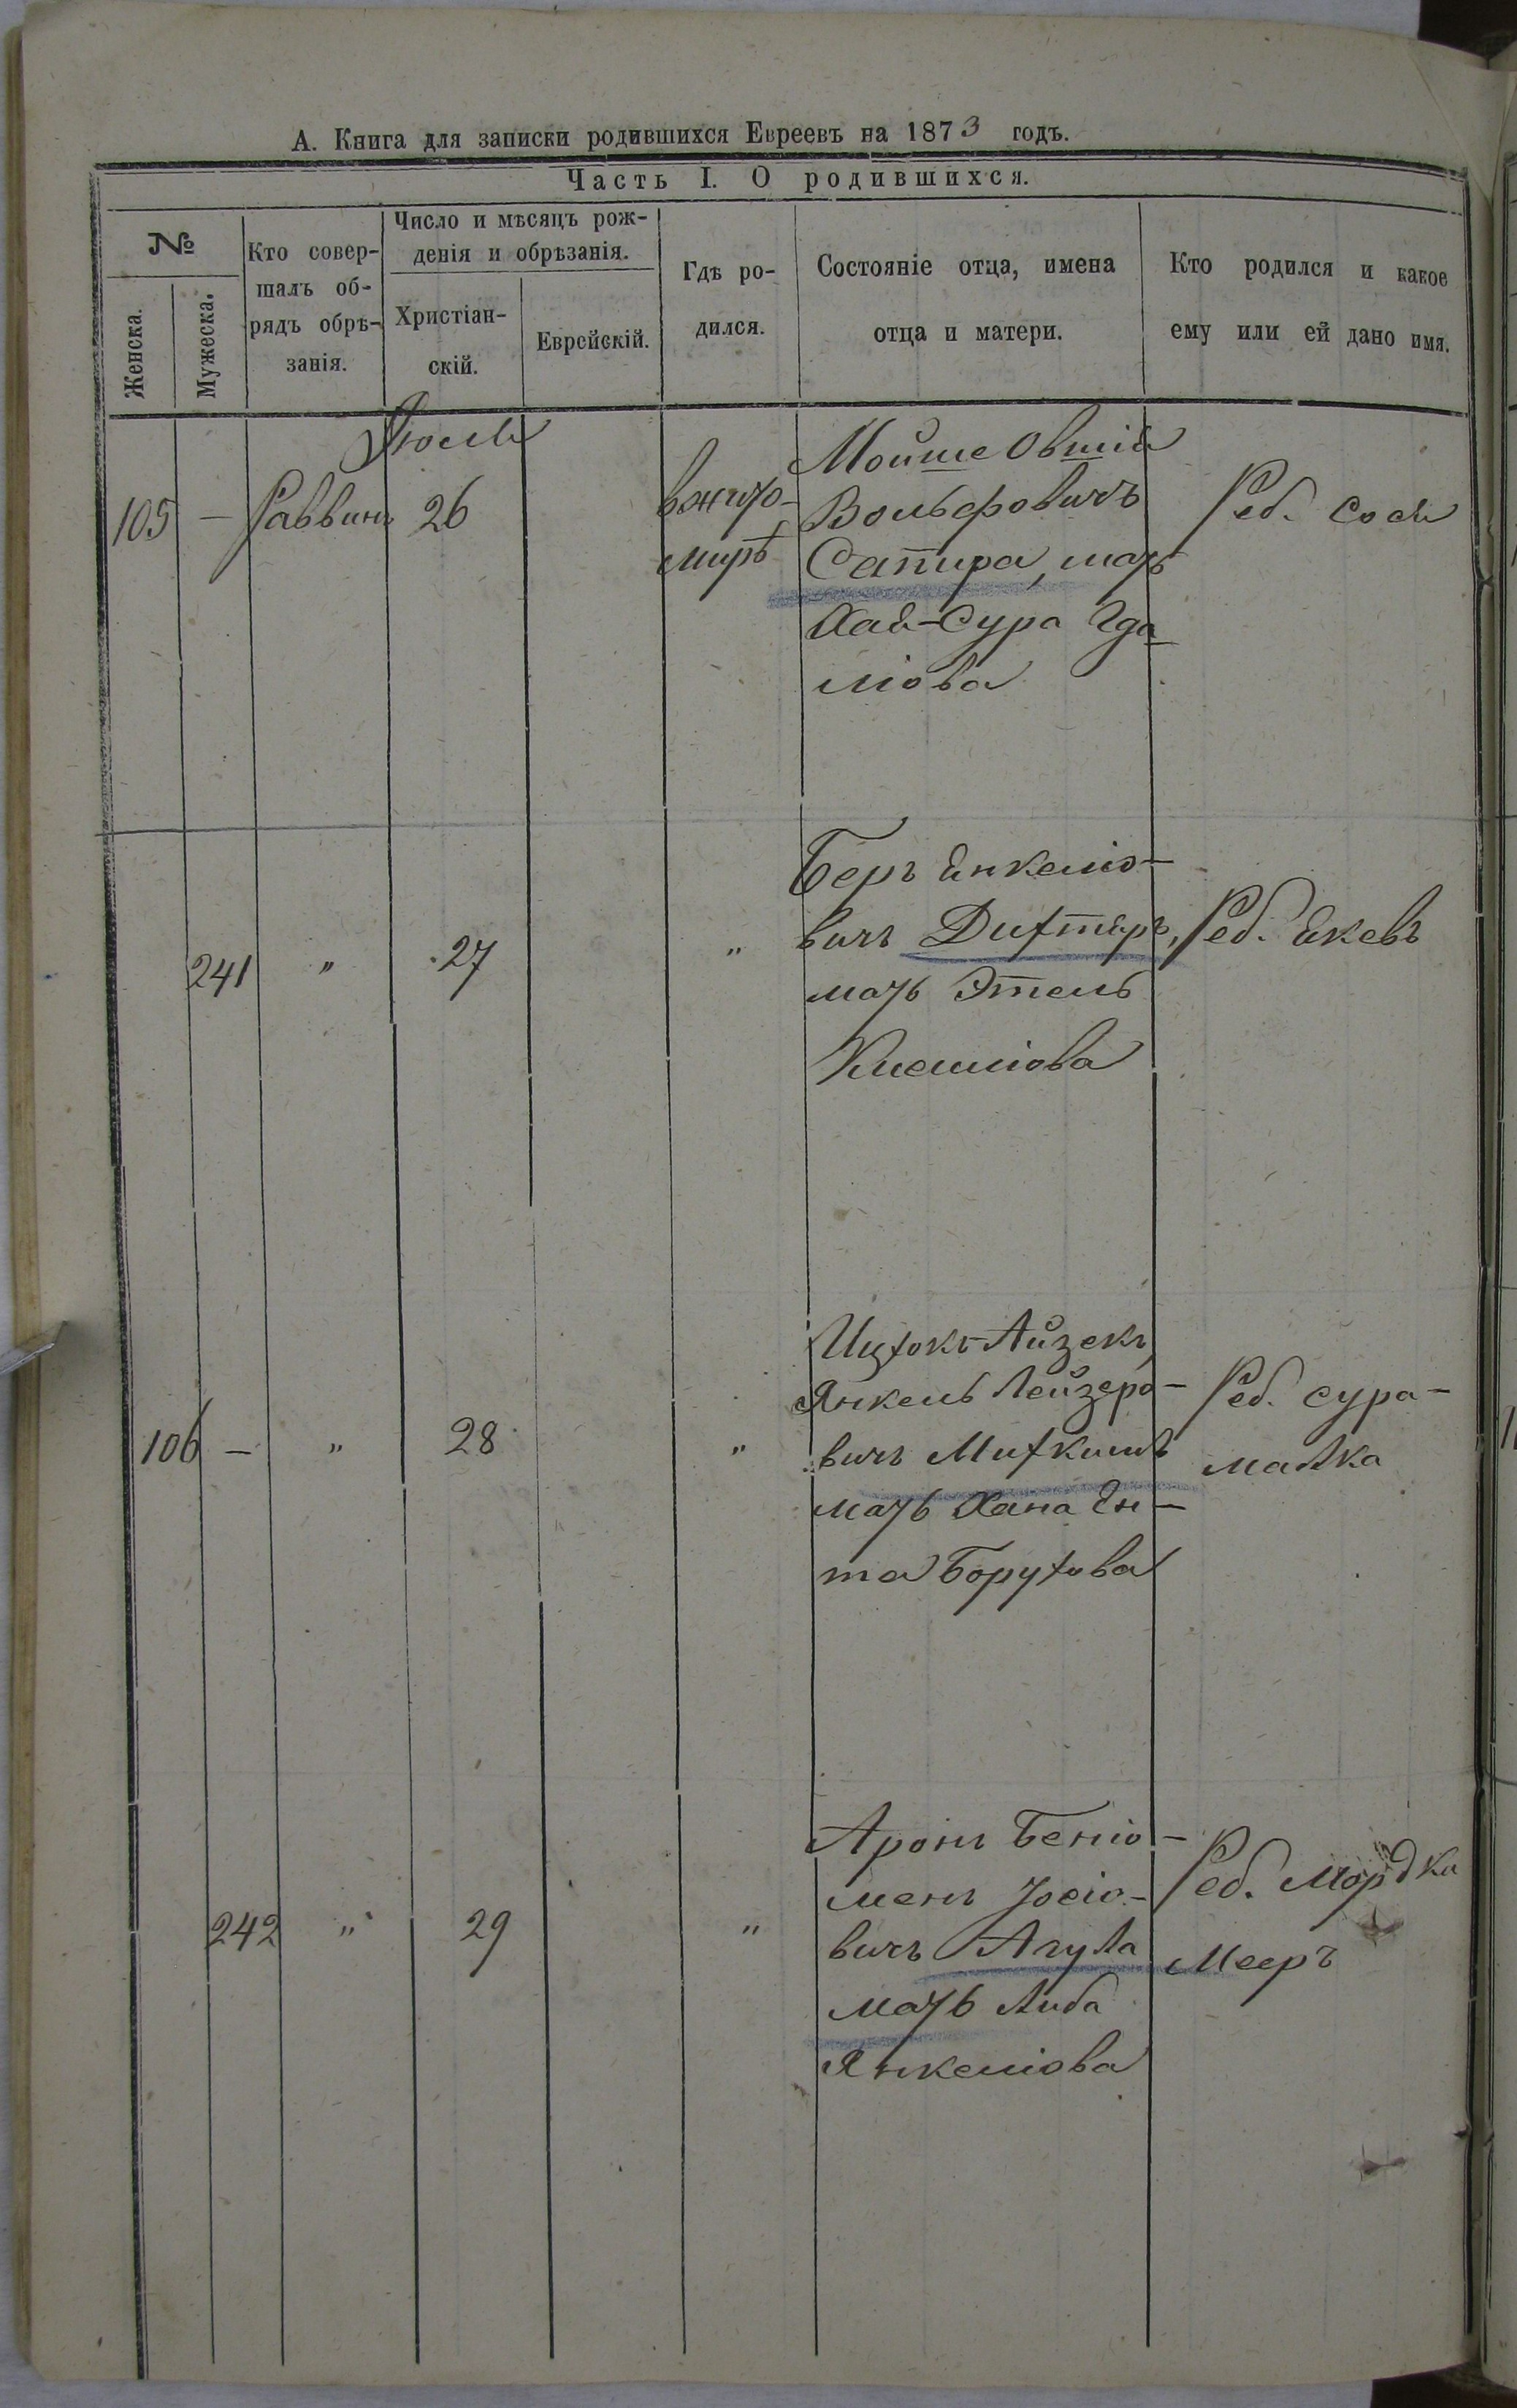 А. Книга для записки родившихся Евреевъ на 1873 годъ.
Часть I. О родившихся.
№
Женска.
Мужеска.
Кто совер-
шалъ об-
рядъ обрѣ-
занія.
Число и мѣсяцъ рож-
денія и обрѣзанія.
Христіан-
скій.
Еврейскій.
Гдѣ ро-
дился.
Состояніе отца, имена
отца и матери.
Кто родился и какое
ему или ей дано имя.
105
—
Раввинъ
26
вжито-
мирѣ
Мойше Овшій
Вольфовичъ
Сатира, мать
Хая-Сура Гда
ліова
Реб. Сося
241
"
27
"
Беръ Енкеліо-
вичъ Дихтяръ,
мать Этель
Реб. Екевъ
106
—
"
28
"
Ицхокъ-Айзекъ
Янкель Лейзеро-
вичъ
мать Хана Ен-
та Борухова
Реб. Сура-
малка
242
"
29
"
Аронъ Беніо-
менъ Іосіо-
вичъ
мать Либа
Янкеліова
Реб. Мордко
Мееръ